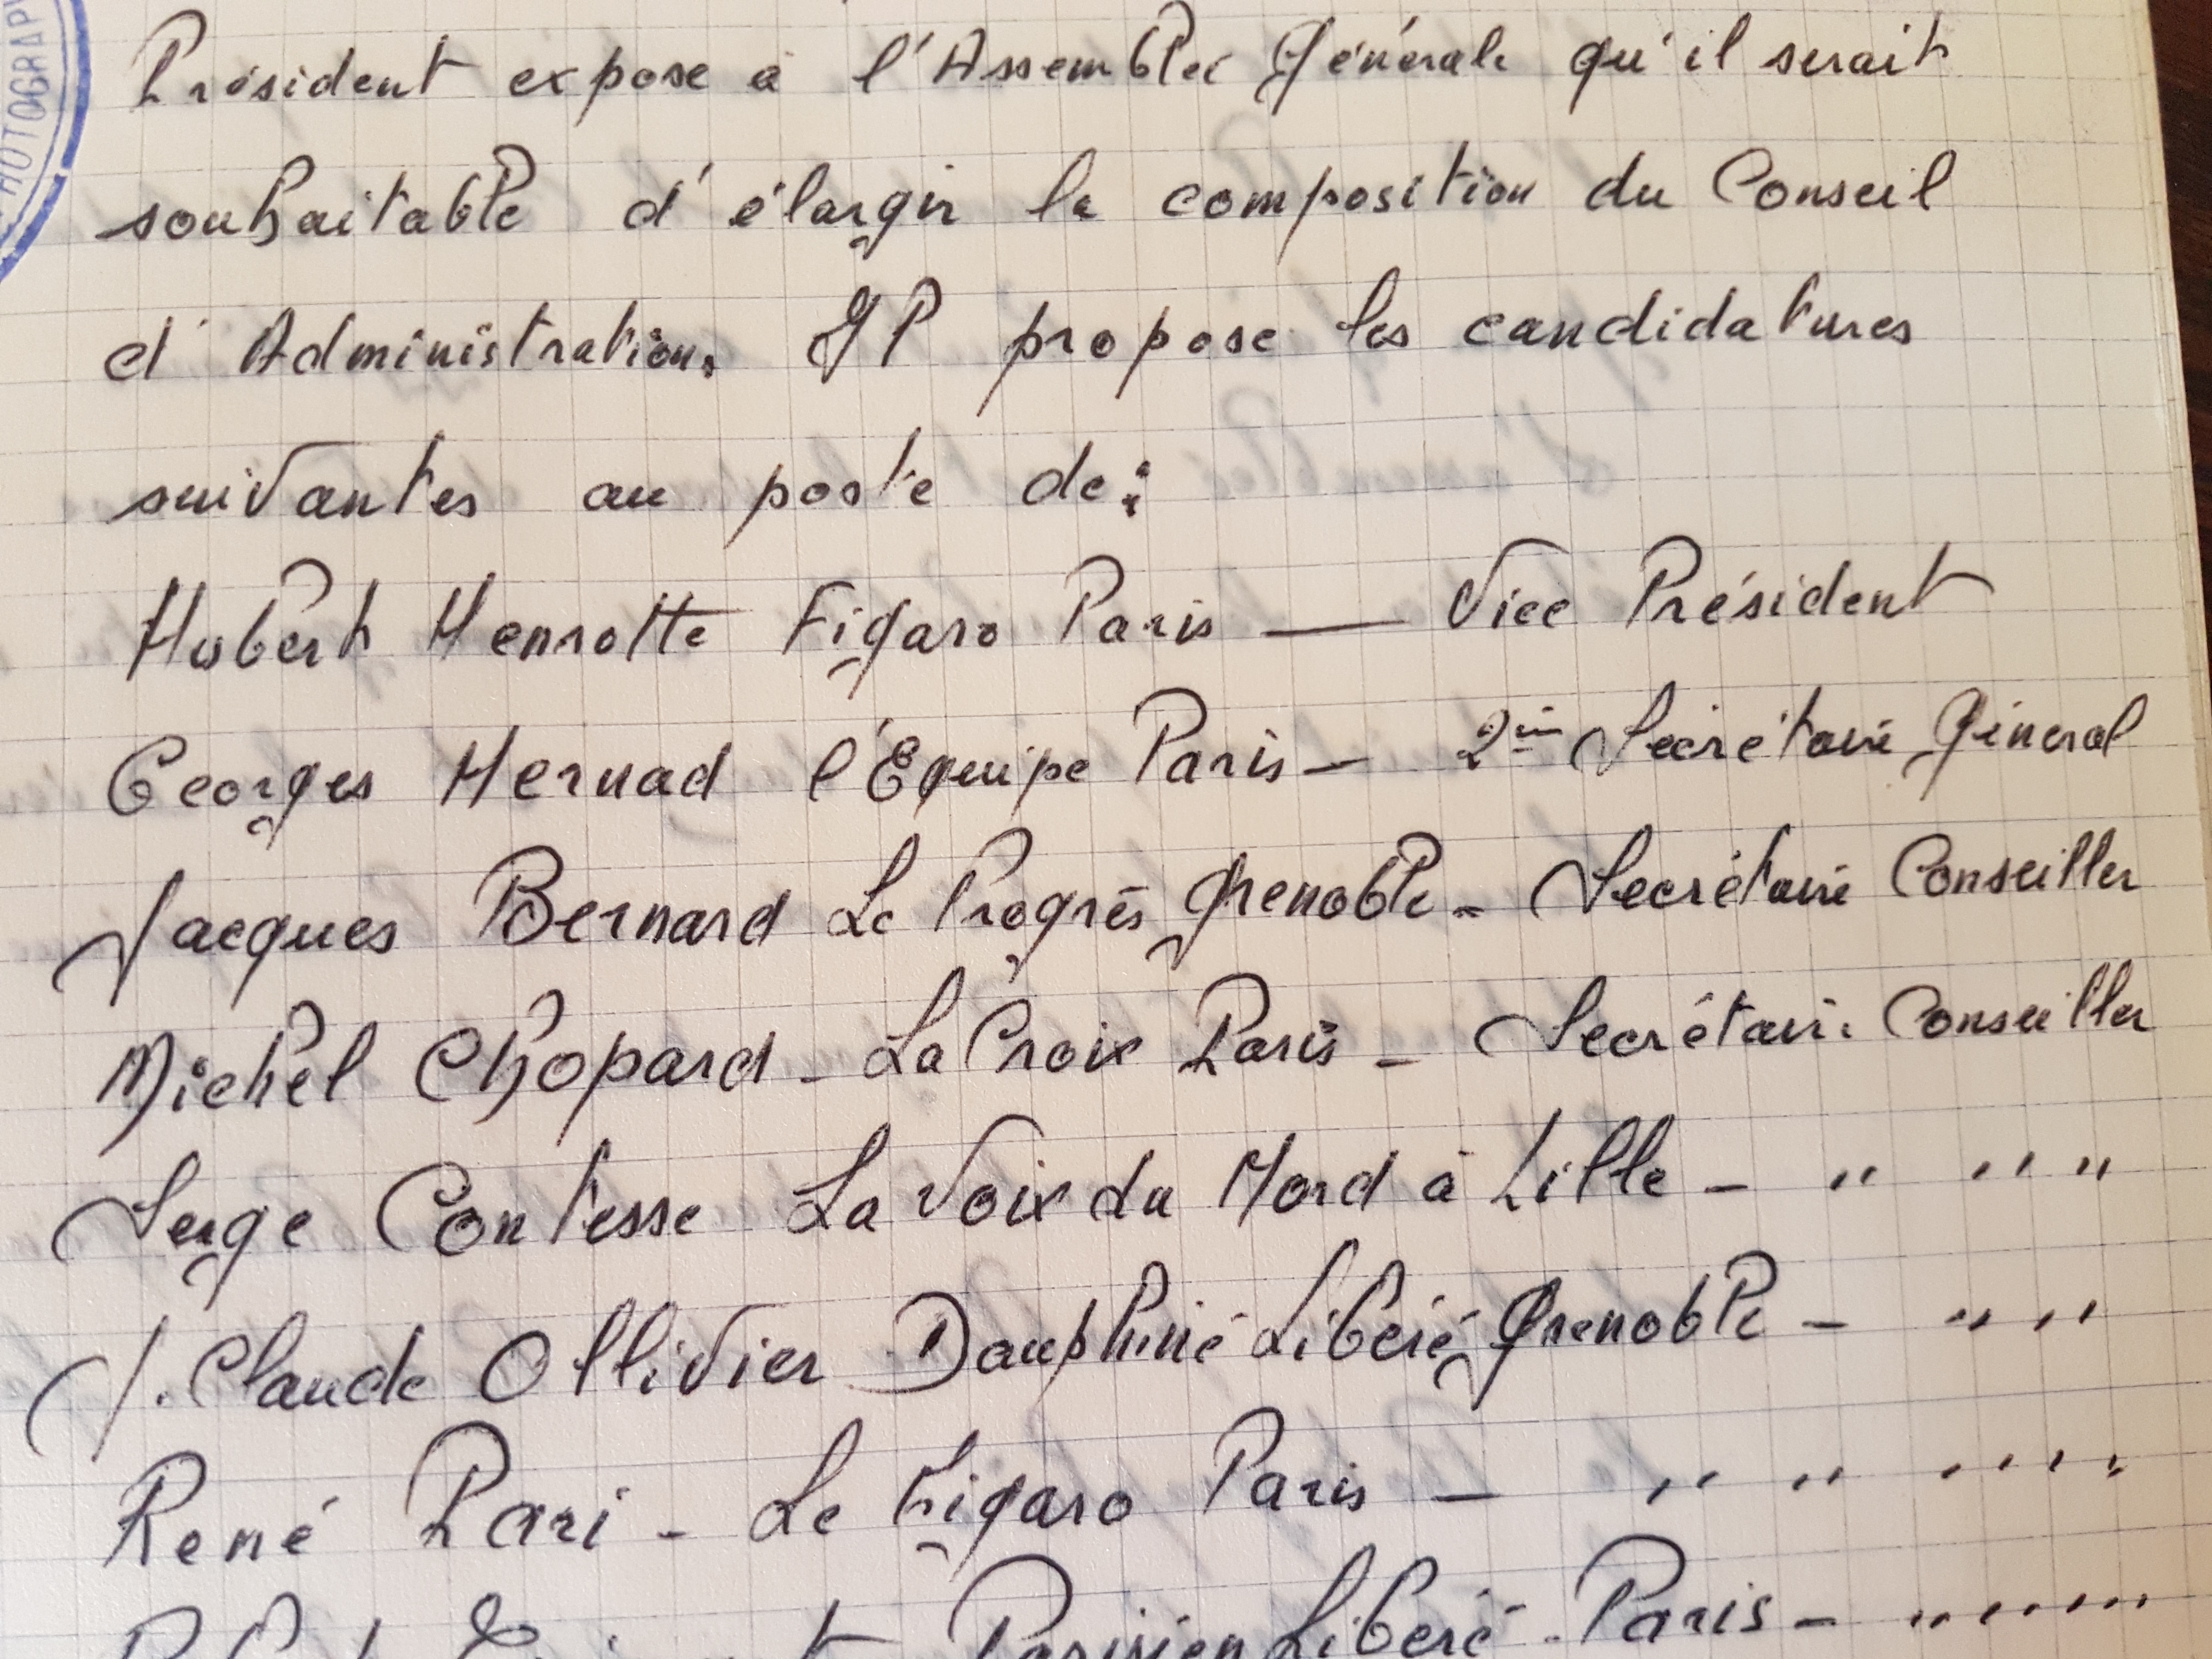 PHOTOGRAP
Président expose à l'Assemblée Générale qu'il serait
souhaitable d'élargir la composition du Conseil
d'Administration. Il propose les candidatures
suivantes au poste de :
Hubert Henrotte Figaro Paris — Vice Président
Georges Hernad l'Équipe Paris — 2èm Secrétaire Général
Jacques Bernard Le Progrès Grenoble - Secrétaire Conseiller
Michel Chopard - La Croix Paris - Secrétaire Conseiller
Serge Contesse La Voix du Nord à Lille - " " "
J. Claude Ollivier Dauphiné Libéré Grenoble - " "
René Pari - Le Figaro Paris - " " " "
Parisien Libéré - Paris - " " " "